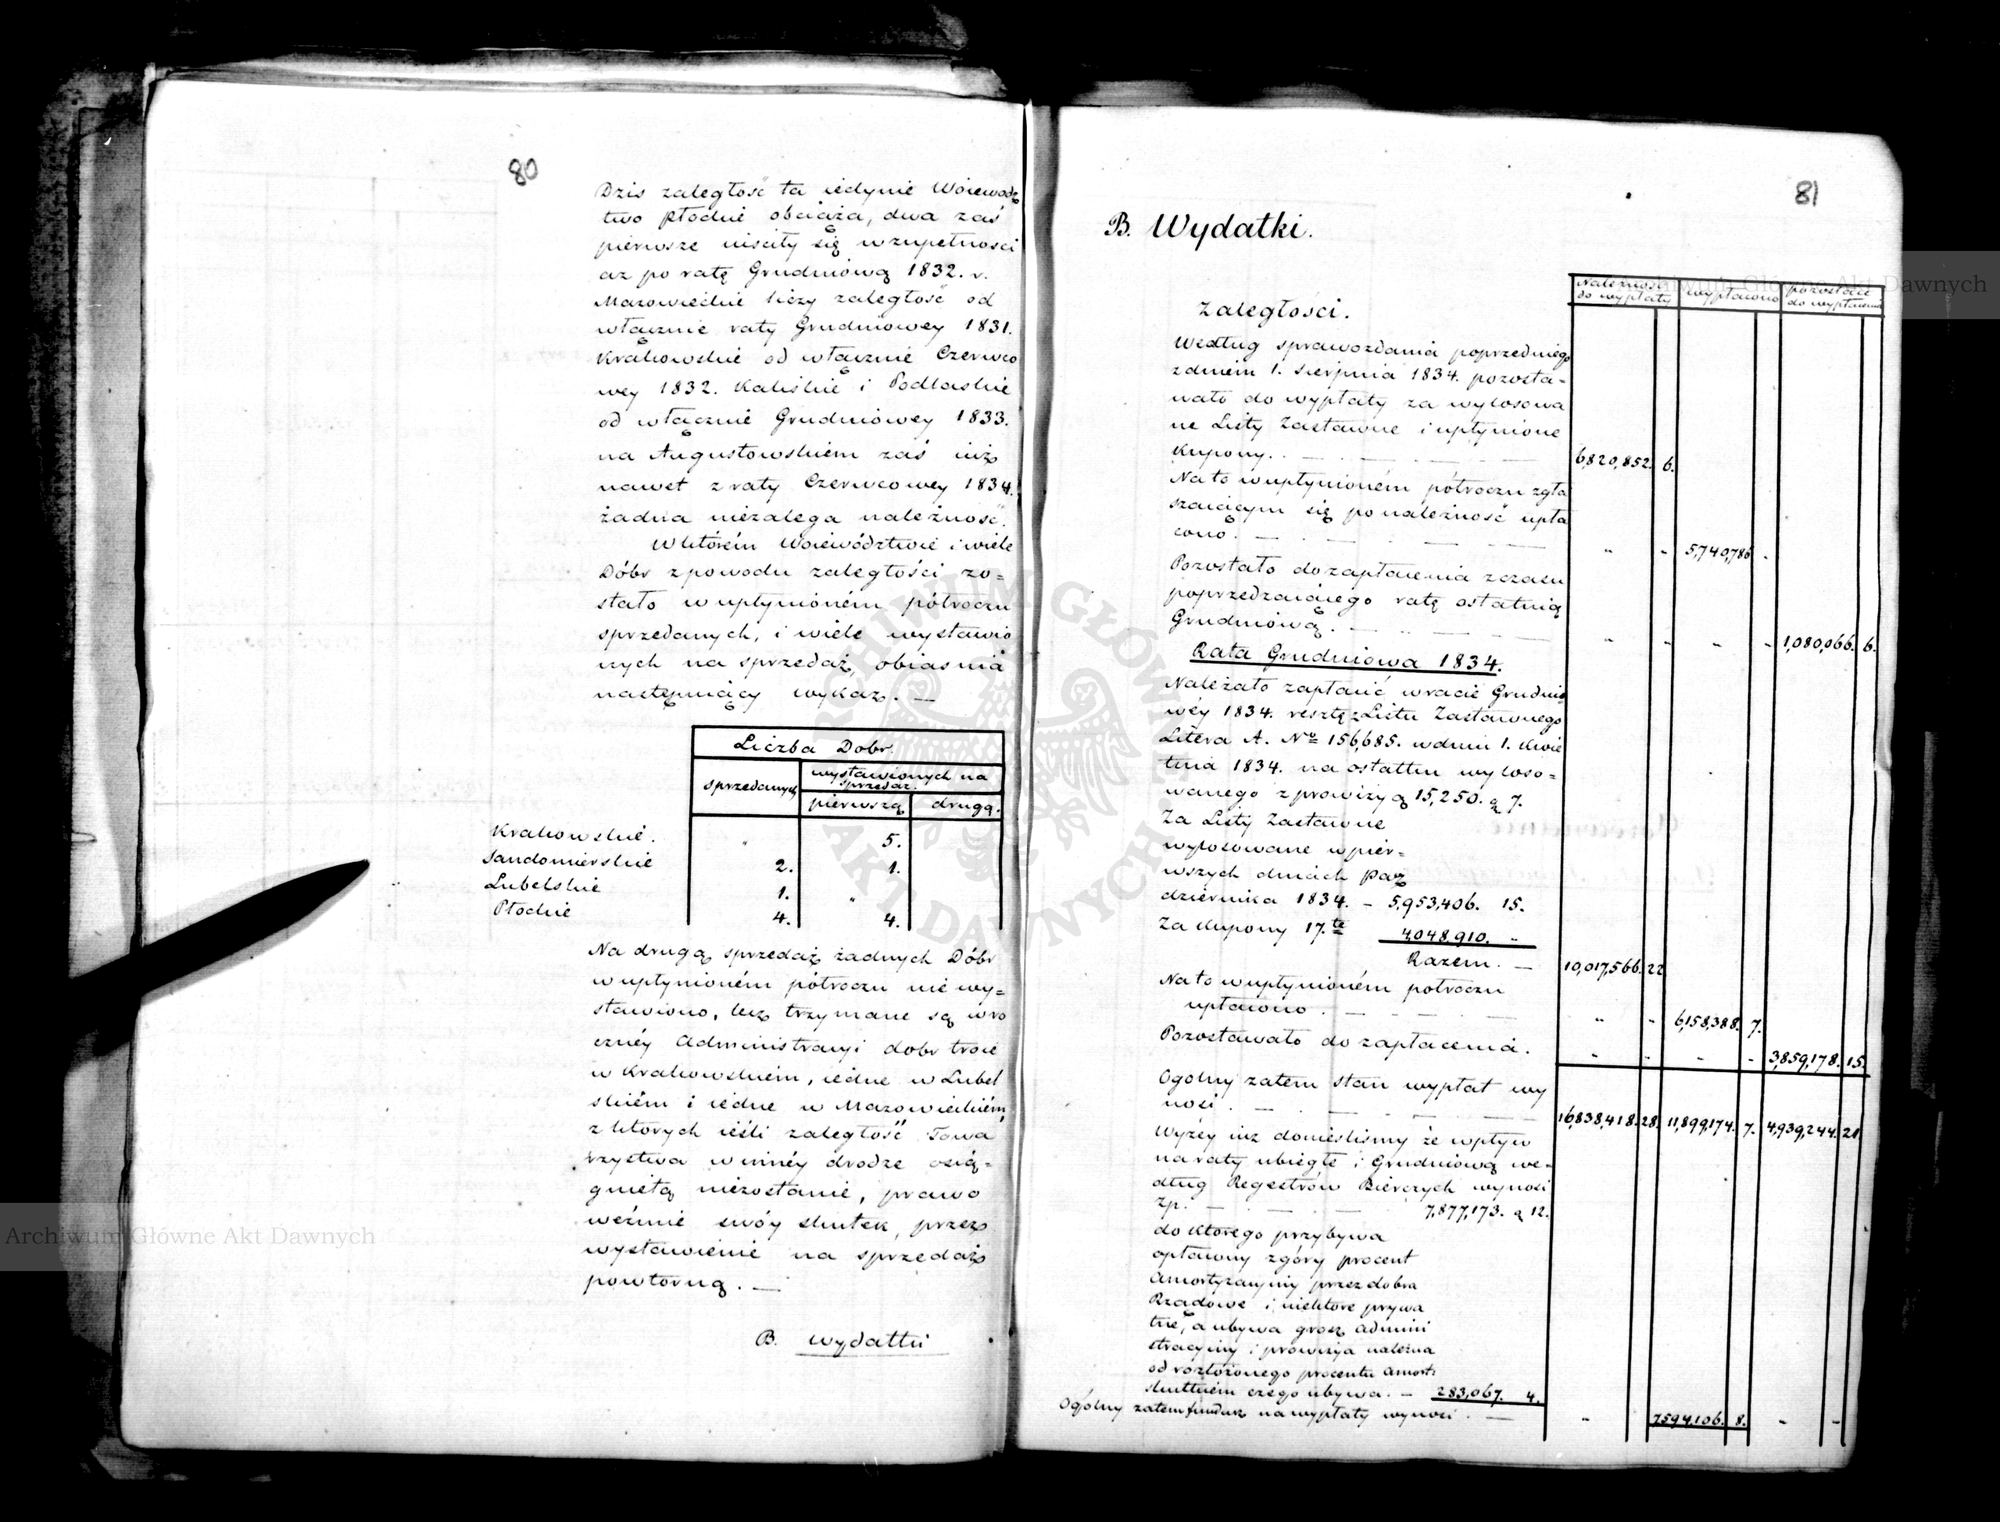 80
Dzis zaległość ta iedynie Woiewodz
two Płockie obciąża, dwa zaś
pierwsze uiściły się w zupełności
az po ratę Grudniową 1832. r.
Mazowieckie liczy zaległość od
włącznie raty Grudniowey 1831.
Krakowskie od włącznie Czerwco
wey 1832. Kaliskie i Podlaskie
od włącznie Grudniowey 1833.
na Augustowskiem zaś iuż
nawet z raty Czerwcowey 1834.
żadna niezalega należność.
W którém Woiewództwie i wiele
Dóbr z powodu zaległości zo=
stało w upłynioném półroczu
sprzedanych, i wiele wystawio
nych na sprzedaż, obiasnia
następuiący wykaz. —
Liczba Dobr.
sprzedanych wystawionych na sprzedaż.
pierwszą drugą.
Krakowskie. " 5.
Sandomierskie 2. 1.
Lubelskie 1. "
Płockie 4. 4.
Na drugą sprzedaż żadnych Dóbr
w upłynioném półroczu nie wy=
stawiono, lecz trzymane są w ro
cznéy Administracyi dobr troie
w Krakowskiem, iedne w Lubel
skiém i iedne w Mazowieckiém,
z których iéśli zaległość Towa
rzystwa w innéy drodze osią=
gniętą niezostanie, prawo
weźmie swóy skutek, przez
wystawienie na sprzedaż
powtorną. —
B. Wydatki
81
B. Wydatki.
Należność do wypłaty wypłacono pozostaie do wypłacenia
Zaległości.
Według sprawozdania poprzedniego
z dniem 1. Sierpnia 1834. pozosta=
wało do wypłaty za wylosowa
ne Listy Zastawne i upłynione
Kupony. 6,820,852. 6.
Na to w upłynioném półroczu zgła
szaiącym się po należność upła
cono. " - 5,740,786 -
Pozostało do zapłacenia z czasu
poprzedzaiącego ratę ostatnią
Grudniową. " - - - 1,080,066. 6.
Rata Grudniowa 1834.
Należało zapłacić w racie Grudnio
wéy 1834. resztę z Listu Zastawnego
Litera A. No 156,685. w dniu 1. Kwie
tnia 1834. na ostatku wyloso=
wanego z prowizyą 15,250. g 7.
Za Listy Zastawne
wylosowane w pier=
wszych dniach Paź
dziernika 1834. - 5,953,406. 15.
Za Kupony 17.te 4,048,910. "
Razem. — 10,017,566. 22
Na to w upłynioném półroczu
upłacono. " - 6,158,388. 7.
Pozostawało do zapłacenia. " - - - 3,859,178. 15.
Ogólny zatem stan wypłat wy
nosi. 16,838,418. 28. 11,899,174. 7. 4,939,244. 21.
Wyżéy iuż donieśliśmy że wpływ
na raty ubiegłe i Grudniową we=
dług Regestrów Bierczych wynosi
Zp. 7,877,173. g 12.
do którego przybywa
opłacony zgóry procent
Amortyzacyiny przez dobra
Rządowe i niektóre prywa
tne, a ubywa grosz admini
stracyiny i prowizya należna
od rozłożonego procentu Amort:
skutkiem czego ubywa. — 283,067. 4.
Ogólny zatem fundusz na wypłaty wynosi. — " 7,594,106. 8. - -
ARCHIWUM GŁÓWNE AKT DAWNYCH
Archiwum Główne Akt Dawnych
Archiwum Główne Akt Dawnych